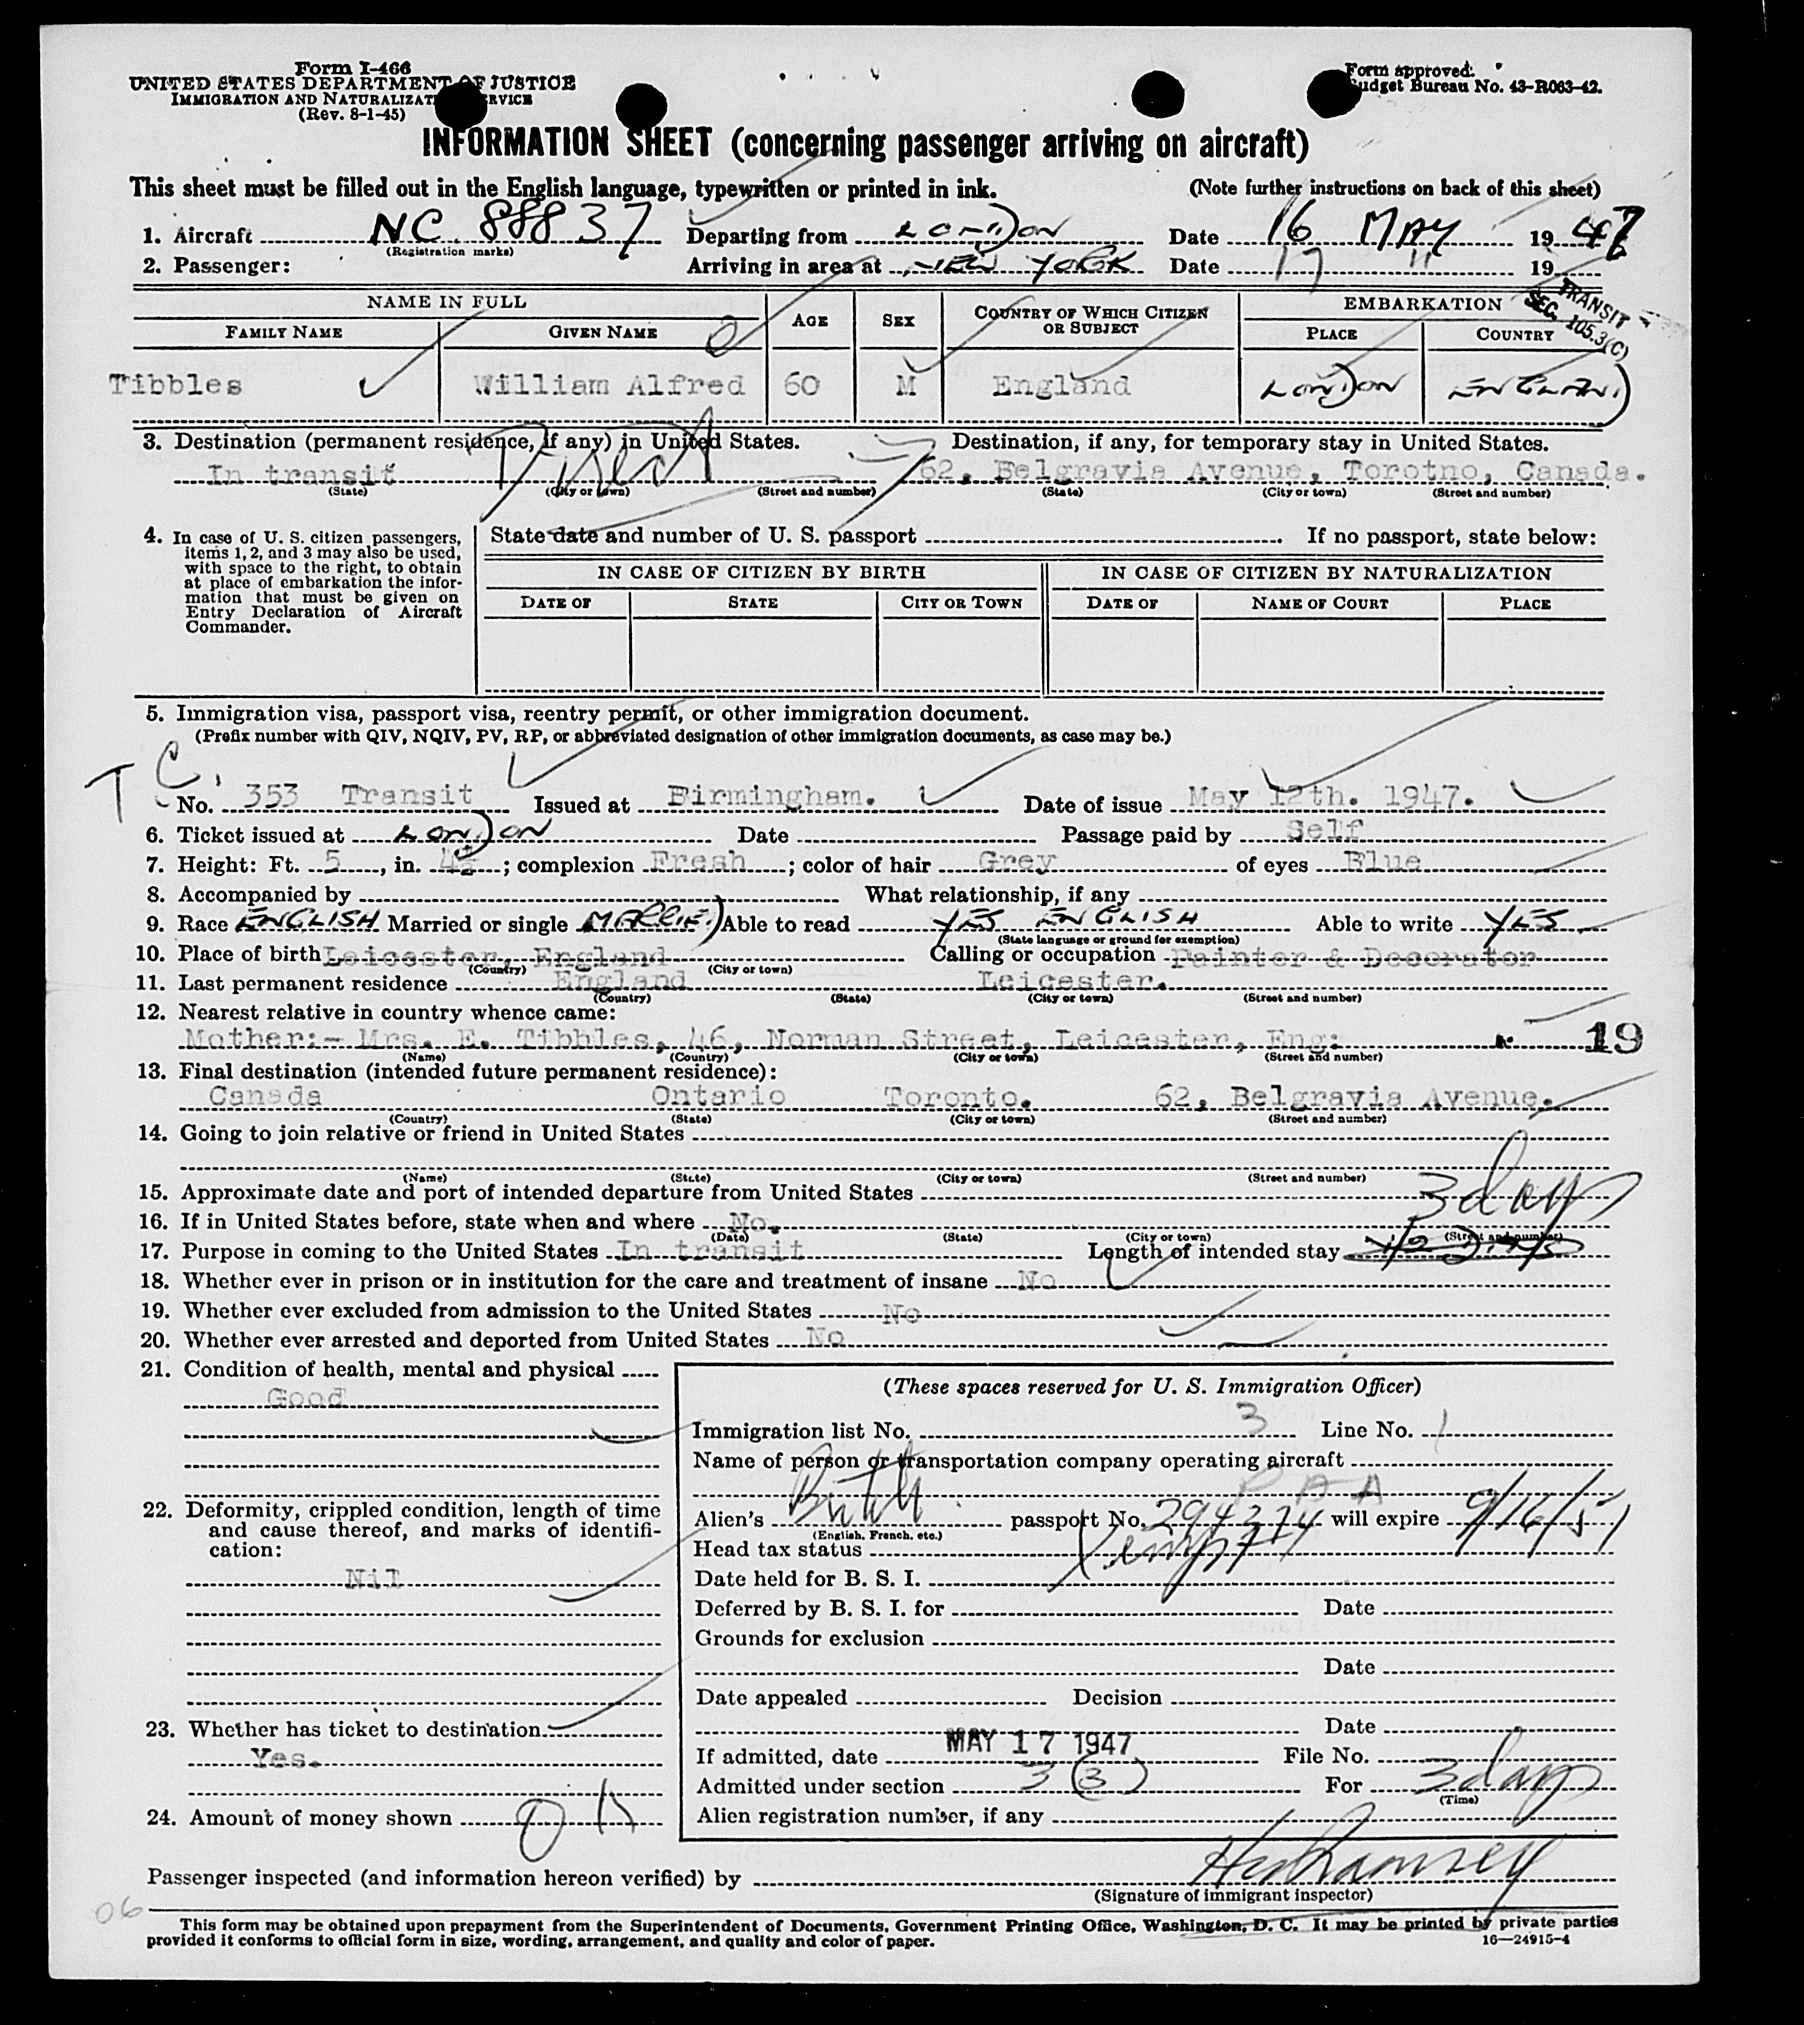 Form I-466
UNITED STATES DEPARTMENT OF JUSTICE
IMMIGRATION AND NATURALIZATION SERVICE
(Rev. 8-1-45)
Form approved.
Budget Bureau No. 43-R063-42.
INFORMATION SHEET (concerning passenger arriving on aircraft)
This sheet must be filled out in the English language, typewritten or printed in ink. (Note further instructions on back of this sheet)
1. Aircraft NC 88837 Departing from LONDON Date 16 MAY 1947
(Registration marks)
2. Passenger: Arriving in area at NEW YORK Date 17 " 19
TRANSIT
SEC. 105.3(C)
NAME IN FULL AGE SEX COUNTRY OF WHICH CITIZEN OR SUBJECT EMBARKATION
FAMILY NAME GIVEN NAME PLACE COUNTRY
Tibbles William Alfred 60 M England LONDON ENGLAND
3. Destination (permanent residence, if any) in United States. Destination, if any, for temporary stay in United States.
In transit Direct 62, Belgravia Avenue, Torotno, Canada.
(State) (City or town) (Street and number) (State) (City or town) (Street and number)
4. In case of U. S. citizen passengers, items 1, 2, and 3 may also be used, with space to the right, to obtain at place of embarkation the information that must be given on Entry Declaration of Aircraft Commander.
State date and number of U. S. passport If no passport, state below:
IN CASE OF CITIZEN BY BIRTH IN CASE OF CITIZEN BY NATURALIZATION
DATE OF STATE CITY OR TOWN DATE OF NAME OF COURT PLACE
5. Immigration visa, passport visa, reentry permit, or other immigration document.
(Prefix number with QIV, NQIV, PV, RP, or abbreviated designation of other immigration documents, as case may be.)
T C.
No. 353 Transit Issued at Birmingham. Date of issue May 12th. 1947.
6. Ticket issued at LONDON Date Passage paid by Self
7. Height: Ft. 5, in. 4½; complexion Fresh; color of hair Grey of eyes Blue
8. Accompanied by What relationship, if any
9. Race ENGLISH Married or single MARRIED Able to read YES ENGLISH Able to write YES
(State language or ground for exemption)
10. Place of birth Leicester, England Calling or occupation Painter & Decorator
(Country) (City or town)
11. Last permanent residence England Leicester.
(Country) (State) (City or town) (Street and number)
12. Nearest relative in country whence came:
Mother:- Mrs. E. Tibbles, 46, Norman Street, Leicester, Eng: 19
(Name) (Country) (City or town) (Street and number)
13. Final destination (intended future permanent residence):
Canada Ontario Toronto. 62, Belgravia Avenue.
(Country) (State) (City or town) (Street and number)
14. Going to join relative or friend in United States
(Name) (State) (City or town) (Street and number)
15. Approximate date and port of intended departure from United States 3 days
16. If in United States before, state when and where No.
(Date) (State) (City or town) (Street and number)
17. Purpose in coming to the United States In transit Length of intended stay
18. Whether ever in prison or in institution for the care and treatment of insane No
19. Whether ever excluded from admission to the United States No
20. Whether ever arrested and deported from United States No
21. Condition of health, mental and physical
Good
22. Deformity, crippled condition, length of time and cause thereof, and marks of identification:
Nil
23. Whether has ticket to destination.
Yes.
24. Amount of money shown OK
(These spaces reserved for U. S. Immigration Officer)
Immigration list No. 3 Line No. 1
Name of person or transportation company operating aircraft
P A A
Alien's British passport No. 294374 will expire 9/16/51
(English, French, etc.)
Head tax status Exempt
Date held for B. S. I.
Deferred by B. S. I. for Date
Grounds for exclusion
Date
Date appealed Decision
Date
If admitted, date MAY 17 1947 File No.
Admitted under section 3 (3) For 3 days
(Time)
Alien registration number, if any
Passenger inspected (and information hereon verified) by
(Signature of immigrant inspector)
06
This form may be obtained upon prepayment from the Superintendent of Documents, Government Printing Office, Washington, D. C. It may be printed by private parties
provided it conforms to official form in size, wording, arrangement, and quality and color of paper. 16—24915-4